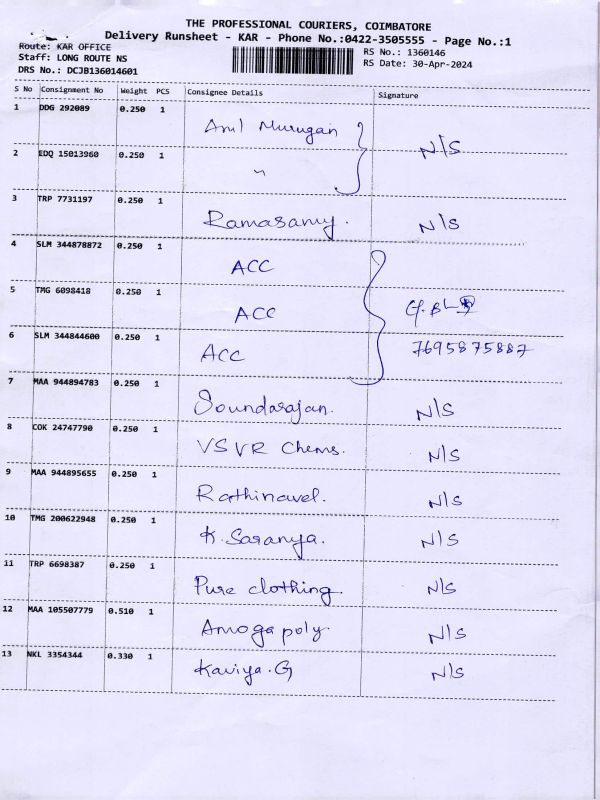 THE PROFESSIONAL COURIERS, COIMBATORE
Delivery Runsheet - KAR - Phone No.:0422-3505555 - Page No.:1
Route: KAR OFFICE
Staff: LONG ROUTE NS
DRS No.: DCJB136014601
RS No.: 1360146
RS Date: 30-Apr-2024
S No Consignment No Weight PCS Consignee Details Signature
1 DDG 292089 0.250 1 Arul Murugan N/S
2 EDQ 15013960 0.250 1 "
3 TRP 7731197 0.250 1 Ramasamy. N/S
4 SLM 344878872 0.250 1 ACC
5 TMG 6098418 0.250 1 ACC
6 SLM 344844600 0.250 1 ACC 7695875887
7 MAA 944894783 0.250 1 Soundarajan. N/S
8 COK 24747790 0.250 1 VSVR Chems. N/S
9 MAA 944895655 0.250 1 Rathinavel. N/S
10 TMG 200622948 0.250 1 K. Saranya. N/S
11 TRP 6698387 0.250 1 Pure clothing. N/S
12 MAA 105507779 0.510 1 Amoga poly. N/S
13 NKL 3354344 0.330 1 Kaviya. G N/S